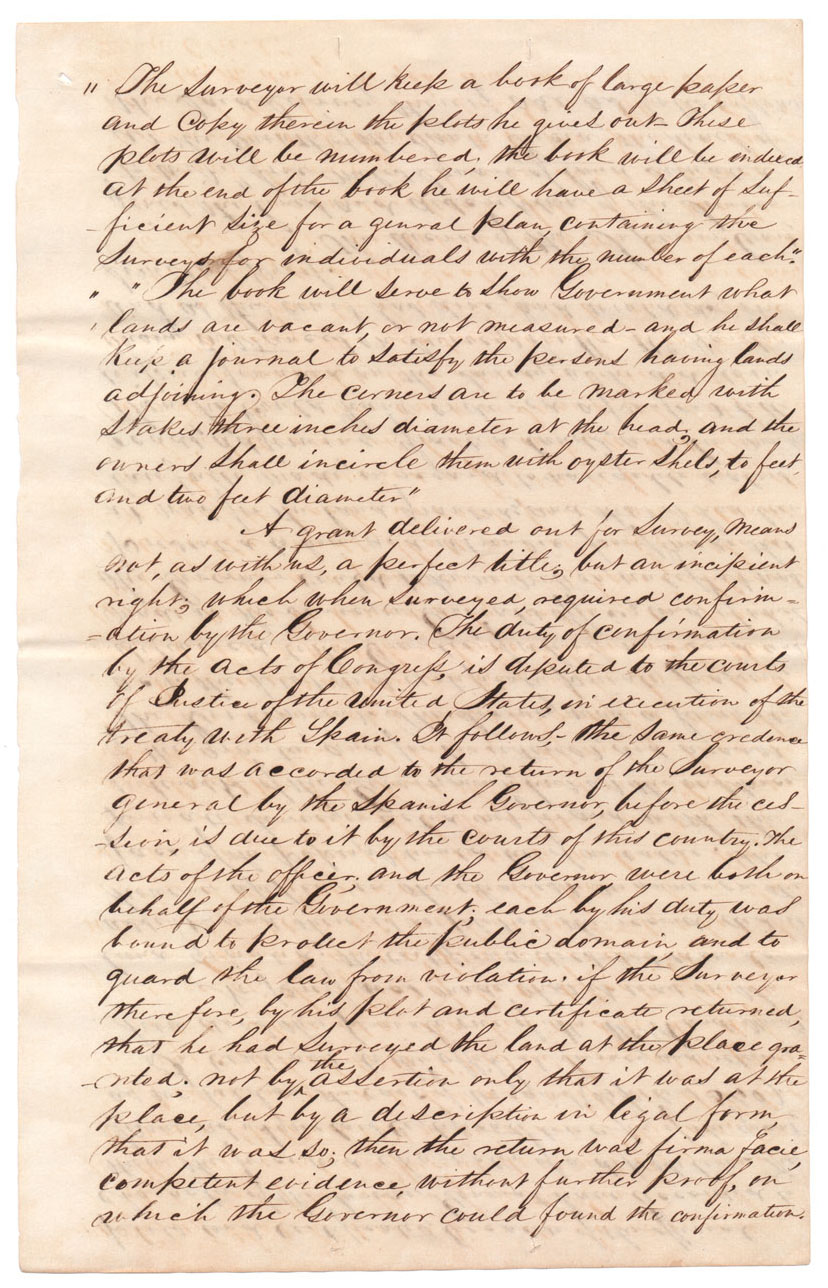 " The Surveyor will keep a book of large paper
and Copy therein the plots he gives out – These
plots will be numbered, the book will be indexed
at the end of the book he will have a sheet of Suf-
-ficient size for a genral plan, containing the
Surveys for individuals with the number of each".
" " The book will serve to show Government what
lands are vacant, or not measured – and he shall
keep a journal to satisfy the persons having lands
adjoining. The corners are to be marked with
stakes three inches diameter at the head, and the
owners shall incircle them with oyster shels, to feet,
and two feet diameter"
A grant delivered out for survey, means
not, as with us, a perfect title; but an incipient
right; which when surveyed, required confirm-
-ation by the Governor. The duty of confirmation
by the acts of Congress, is deputed to the courts
of Justice of the United States, in execution of the
treaty with Spain. It follows, – the same credence
that was accorded to the return of the Surveyor
general by the Spanish Governor, before the ces-
-sion, is due to it by the courts of this country. The
acts of the officer, and the Governor, were both on
behalf of the Government; each by his duty was
bound to protect the public domain, and to
guard the law from violation. if the Surveyor
therefore, by his plot and certificate returned,
that he had surveyed the land at the place gra-
-nted; not by the assertion only that it was at the
place, but by a description in legal form,
that it was so; then the return was firma facie,
competent evidence, without further proof, on
which the Governor could found the confirmation.